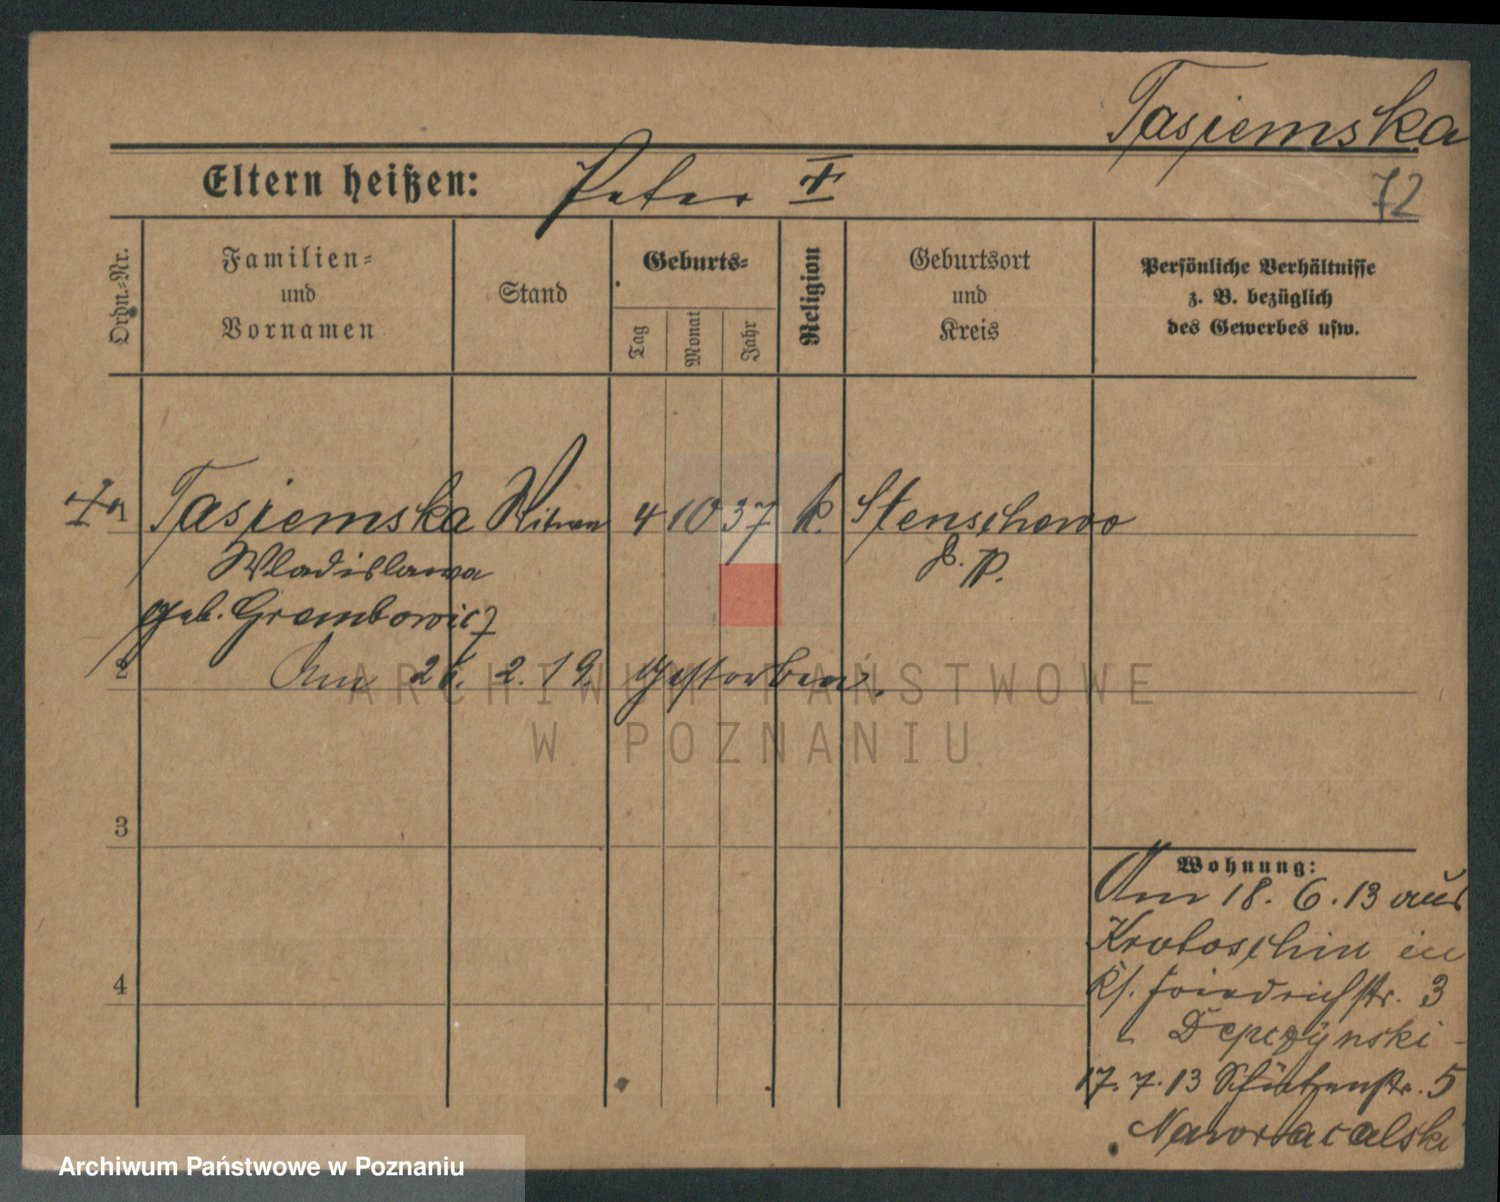 Tasiemska
Eltern heißen: Peter †
72
Ordn.-Nr.
Familien-
und
Vornamen
Stand
Geburts-
Tag
Monat
Jahr
Religion
Geburtsort
und
Kreis
Persönliche Verhältnisse
z. B. bezüglich
des Gewerbes usw.
† 1 Tasiemska Witwe 4 10 37 k. Stenschewo
Wladislawa P. W.
geb. Grembowicz
2 Am 26. 2. 19. gestorben.
ARCHIWUM PAŃSTWOWE
W POZNANIU
3
4
Wohnung:
Am 18. 6. 13 aus
Krotoschin in
Friedrichstr. 3
Depczÿnski
17. 7. 13 Schützenstr. 5
Archiwum Państwowe w Poznaniu